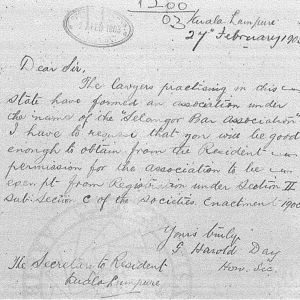 1300
03
Kuala Lumpure
27th February 190
Dear Sir,
The lawyers practising in this
State have formed an association under
the name of the "Selangor Bar Association"
I have to request that you will be good
enough to obtain from the Resident
permission for the association to be
exempt from Registration under Section II
Sub: Section C of the Societies Enactment 190
Yours truly
Harold Day
Hon. Sec.
The Secretary to Resident
Kuala Lumpure